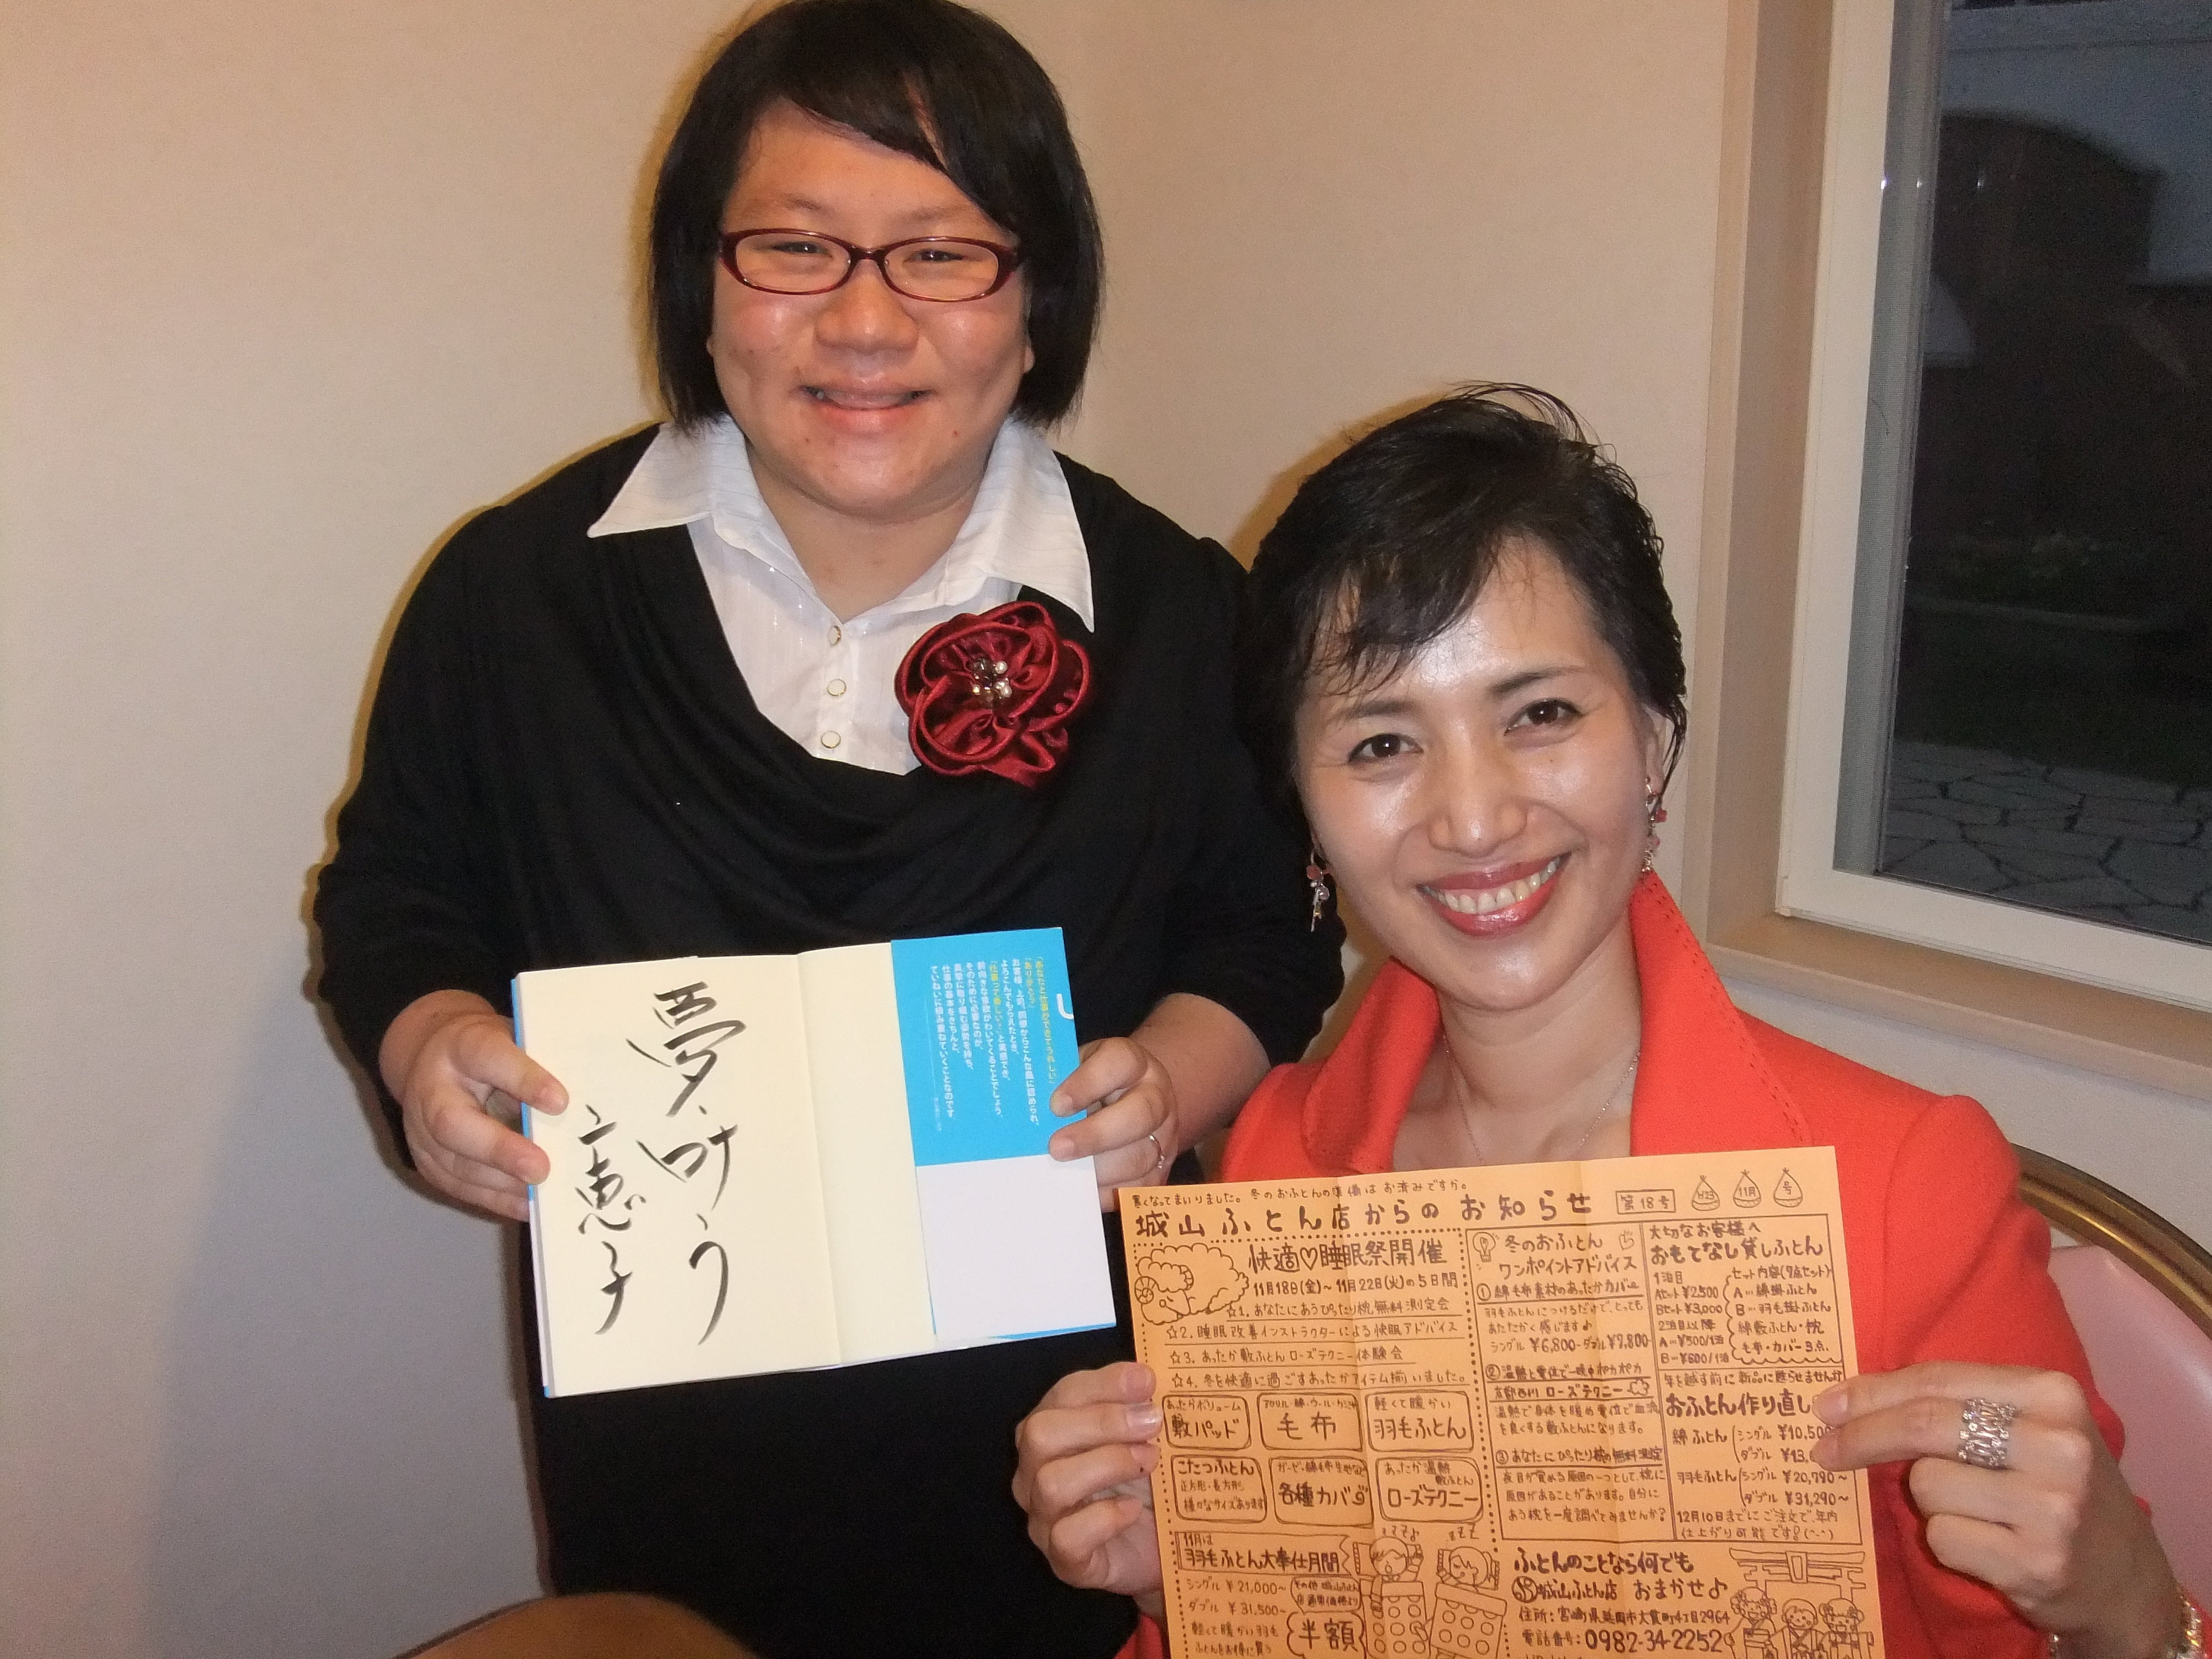 夢叶う
恵子
「あなたと仕事ができてうれしい」
「ありがとう」
お客様、上司、同僚からこんな風に認められ、
よろこんでもらえたとき、
「仕事って楽しい！」と実感でき、
寒くなってまいりました。冬のおふとんの準備はお済みですか。
城山ふとん店からのお知らせ
第18号
H23
11月
号
快適♡睡眠祭開催
11月18日(金)～11月22日(火)の5日間
☆1. あなたにあうぴったり枕無料測定会
☆2. 睡眠改善インストラクターによる快眠アドバイス
☆3. あったか敷ふとんローズテクニー体験会
☆4. 冬を快適に過ごすあったかアイテム揃いました。
あったかボリューム
敷パッド
毛布
軽くて暖かい
羽毛ふとん
こたつふとん
正方形・長方形
様々なサイズあります
各種カバー
あったか温熱
敷ふとん
ローズテクニー
11月は
羽毛ふとん大奉仕月間
シングル ¥21,000～
ダブル ¥31,500～
半額
軽くて暖かい羽毛
ふとんをお得に買う
冬のおふとん
ワンポイントアドバイス
① 綿毛布素材のあったかカバー
羽毛ふとんにつけるだけで、とっても
あたたかく感じます♪
シングル ¥6,800- ダブル ¥9,800-
② 温熱と電位で一晩中ポカポカ
京都西川 ローズテクニー
温熱で身体を暖め電位で血流
を良くする敷ふとんになります。
③ あなたにぴったり枕の無料測定
夜目が覚める原因の一つとして、枕に
原因があることがあります。自分に
あう枕を一度調べてみませんか？
大切なお客様へ
おもてなし貸しふとん
1泊目
Aセット ¥2,500
Bセット ¥3,000
2泊目以降
A…¥500/1泊
B…¥600/1泊
セット内容(7点セット)
A…綿掛ふとん
B…羽毛掛ふとん
綿敷ふとん・枕
毛布・カバー3点
年を越す前に新品に甦らせませんか
おふとん作り直し
綿ふとん
シングル ¥10,500
ダブル ¥13,
羽毛ふとん
シングル ¥20,790～
ダブル ¥31,290～
12月10日までにご注文で、年内
仕上がり可能です！(^-^)
ふとんのことなら何でも
城山ふとん店 おまかせ♪
住所：宮崎県延岡市大貫町4丁目2964
電話番号：0982-34-2252